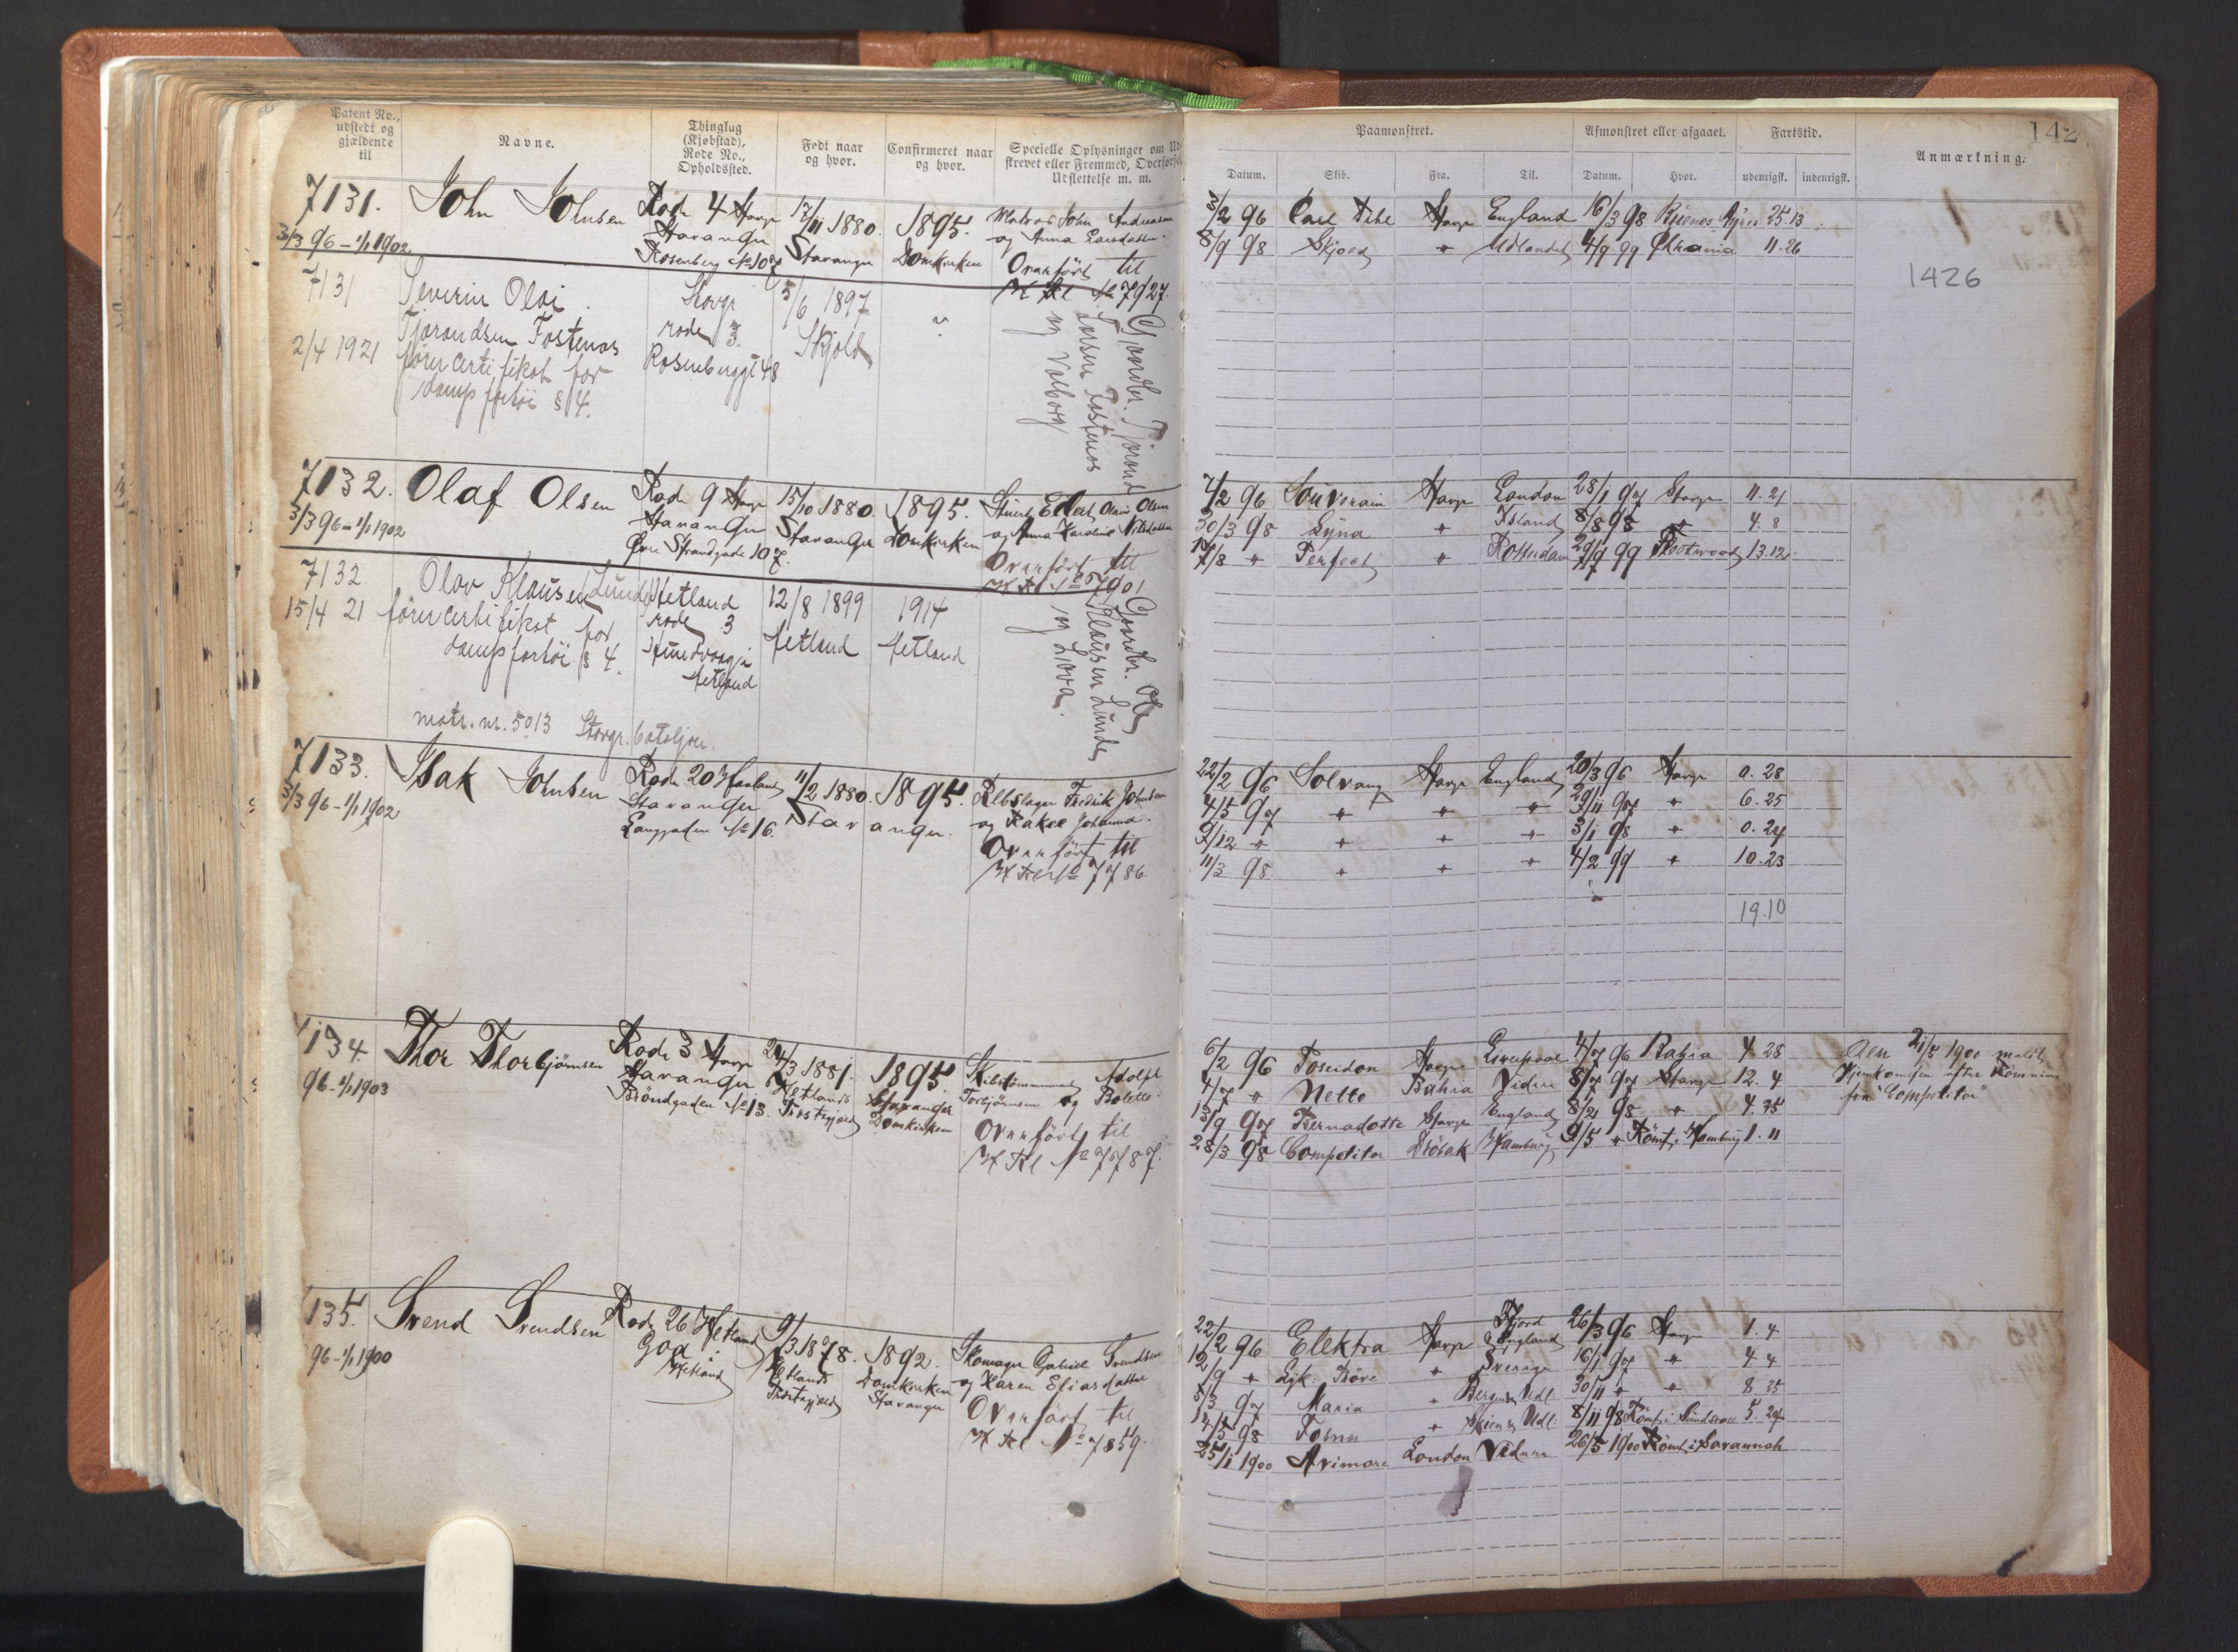 Patent No., udstedt og gjældende til
Navne.
Thinglag (Kjøbstad), Rode No., Opholdssted.
Født naar og hvor.
Confirmeret naar og hvor.
Specielle Oplysninger om Ud-
strevet eller Fremmed, Overførsel,
Udslettelse m. m.
Paamønstret.
Afmønstret eller afgaaet.
Fartstid.
Anmærkning.
142
Datum. Skib. Fra. Til. Datum. Hvor. udenrigsk. indenrigsk.
7131. John Johnsen Rode 4 Stavgr 17/11 1880. 1895. Matros John Andreasen
3/3 96 - 1/1 1902 Stavanger Stavanger Domkirken og Anna
Rosenberg No 107 Overført til
H Rl No 7927.
3/2 96 Carl Stavgr England 16/3 98 Buenos Ayres 25.13
8/9 98 Skjold " Udlandet 4/9 99 Chrania 11.26
1426
7131 Severin Olai Stavgr 5/6 1897 "
Tjorandsen Fostenes rode 3. Skjold
2/4 1921 førercertifikat for Rosenberggt 48
dampfartøi § 4.
Gaardbr. Tjorand
Larsen Fostenes
og Valborg
7132. Olaf Olsen Rode 9 Stavgr 15/10 1880. 1895. Stuert Olsen
3/3 96 - 1/1 1902 Stavanger Stavanger Domkirken og Anna Karoline Nilsdatter
Øvre Strandgade 107. Overført til
H Rl No 7901
7/2 96 Souverain Stavgr London 28/1 97 Stavgr 11.21
30/3 98 Syna " Island 8/8 98 " 4.8
17/8 " Perfect " Rotterdam 29/9 99 13.12
7132 Olav Klausen Lunde Hetland 12/8 1899 1914
15/4 21 førercertifikat for rode 3 Hetland Hetland
dampfartøi § 4. Hundvaagø
Hetland
Gaardbr. Ole
Klausen Lunde
og
matr. nr. 5013 Stavgr. bataljon.
7133. Isak Johnsen Rode 20 Hetland 11/2 1880. 1895. Rebslager Fredrik Johnsen
3/3 96 - 1/1 1902 Stavanger Stavanger. og Rakel Johanna.
Langgaden No 16. Overført til
H Rl No 7786.
22/2 96 Solvang Stavgr England 20/3 96 Stavgr 0.28
4/5 97 " " " 29/11 97 " 6.25
9/12 " " " " 3/1 98 " 0.24
11/3 98 " " " 4/2 99 " 10.23
19.10
7134 Thor Thorbjørnsen Rode 3 Stavgr 24/3 1881. 1895. Adolf
96 - 1/1 1903 Stavanger Hetlands Stavanger Torbjørnsen og Bolette.
Brøndgaden No 13. Prestegjeld Domkirken
Overført til
H Rl No 7787.
6/2 96 Poseidon Stavgr Liverpool 4/7 96 Bahia 4.28
4/7 " Netto Bahia Videre 8/7 97 Stavgr 12.4
13/9 97 Bernadotte Stavgr England 8/2 98 " 4.25
28/3 98 Competitor Drøbak Hamburg 9/5 " Rømt i Hamburg 1.11
Den 21/5 1900 meldt
Hjemkomsten efter Rømning
fra "Competitor"
7135. Svend Svendsen Rode 26 Hetland 9/3 1878. 1892. Skomager Gabriel Svendsen
96 - 1/1 1900 Goa Hetlands Domkirken og Karen Eliasdatter
Hetland Prestegjeld Stavanger Overført til
H Rl No 7859.
22/2 96 Elektra Stavgr Fjord & England 26/3 96 Stavgr 1.4
12/9 " " Sverige 16/1 97 " 4 4
5/3 97 Maria " Bergen & Udl. 30/11 " " 8.25
14/5 98 Fosna " Skien & Udl. 8/11 98 Rømt i 5.24
25/1 1900 Avimore London Videre 26/5 1900 Rømt i Savannah